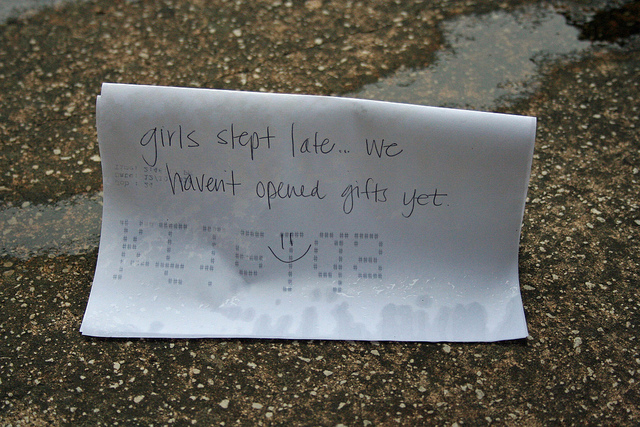 girls slept late... we
haven't opened gifts yet.